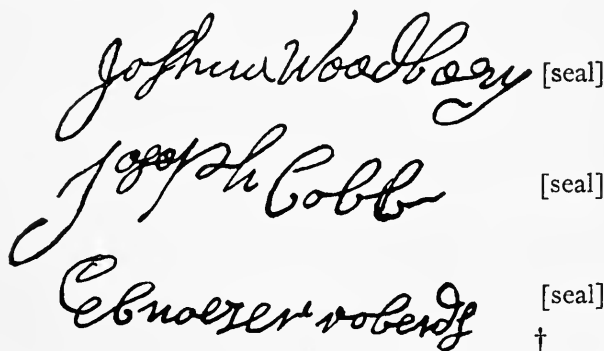 Joshua Woodbery [seal]
Joseph Cobb [seal]
Ebnoezer roberds [seal]
†